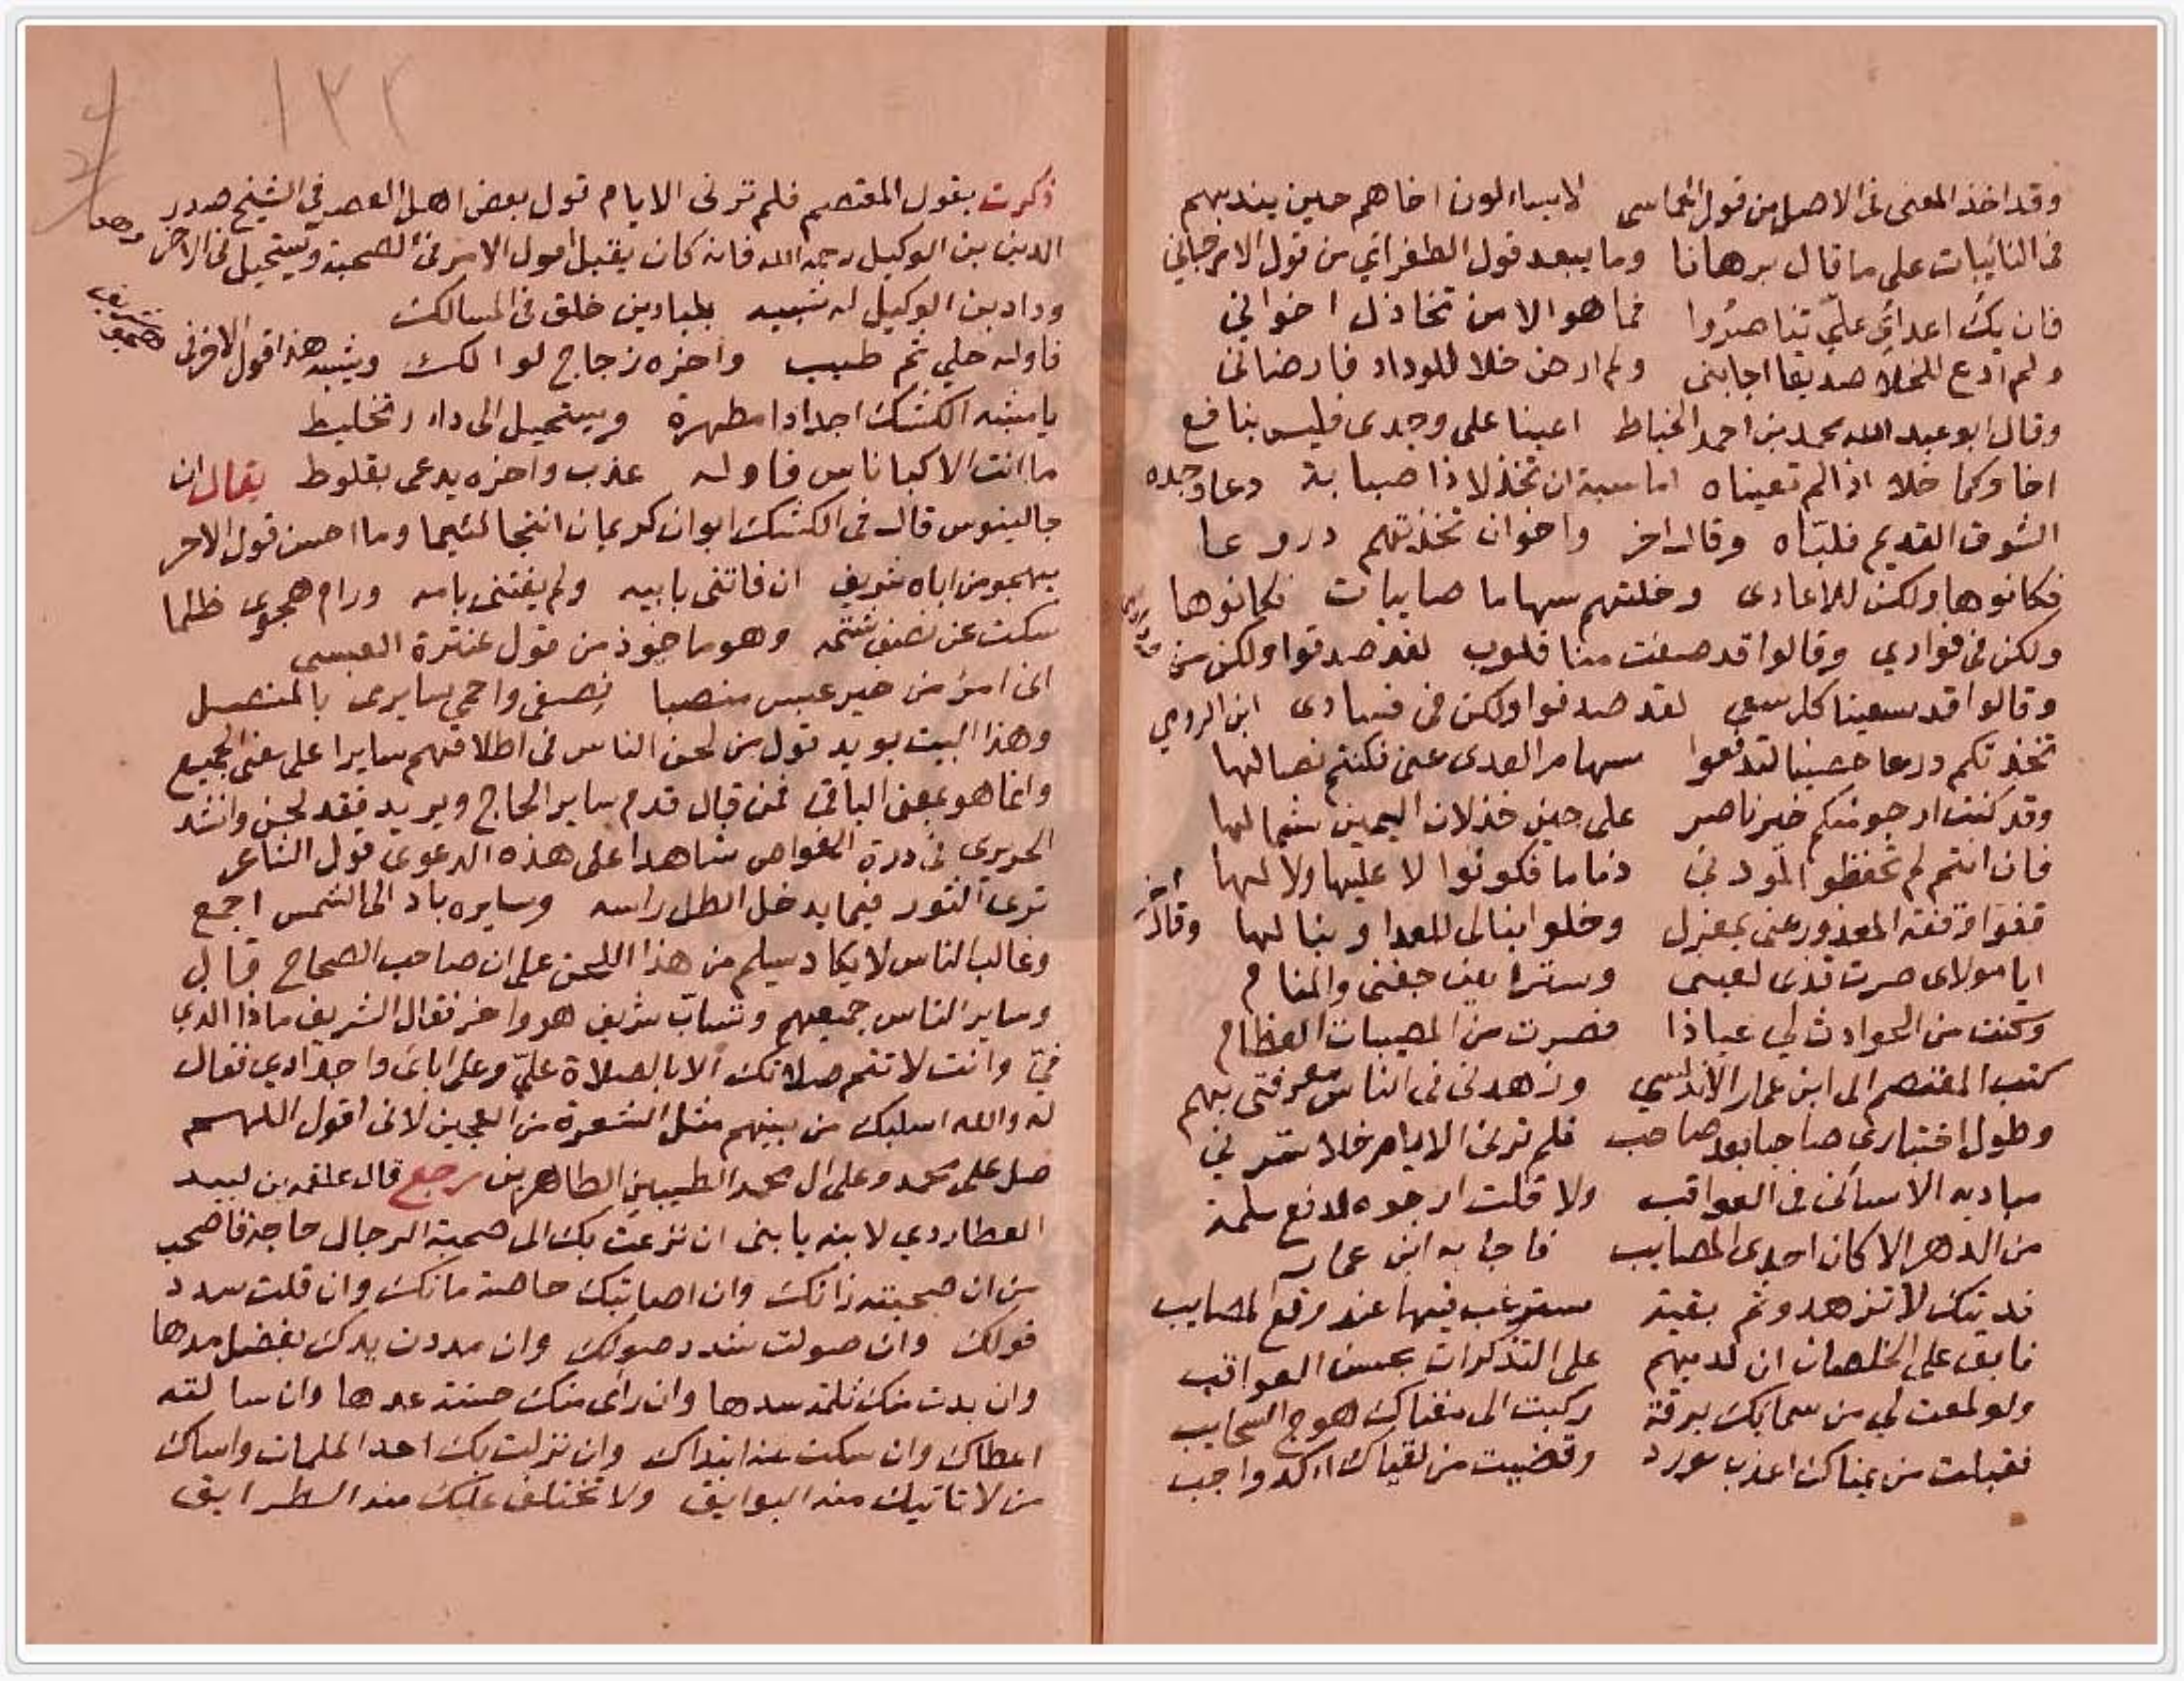 وقد اخذ المعنى في الاصل من قول الحماسى لا يساءلون اخاهم حين يندبهم
فى النائبات على ما قال برهانا وما يبعد قول الطغرائي من قول الارجاني
فان يك اعدائي عليّ تناصرُوا فما هو الا من تخاذل اخواني
ولم ادع للخلا صديقا اجابنى ولم ارض خلا للوداد فارضانى
وقال ابو عبد الله محمد بن احمد الخياط اعينا على وجدى فليس بنافع
اخاوكما خلا اذا لم تعيناه اما سبة ان تخذلا ذا صبابة دعا وجده
الشوق القديم فلبّاه وقال اخر واخوان تخذتهم دروعا
فكانوها ولكن للاعادى وخلتهم سهاما صايبات فكانوها
ولكن فى فوادي وقالوا قد صفت منا قلوب لقد صدقوا ولكن من ودادى
وقالوا قد سعينا كل سعي لقد صدقوا ولكن فى فسادى ابن الرومي
تخذتكم درعا حصينا لتدفعوا سهام العدى عنى فكنتم نصالها
وقد كنت ارجو منكم خير ناصر على حين خذلان اليمين شمالها
فان انتم لم تحفظوا لمودتي ذماما فكونوا لا عليها ولا لها
قفوا وقفة المعذور عنى بمعزل وخلوا نبالى للعدا ونبالها وقال اخر
ايا مولاى صرت قذى لعينى وسترا بين جفنى والمنام
وكنت من الحوادث لي عياذا فصرت من المصيبات العظام
كتب المعتصم الى ابن عمار الاندلسي وزهدنى فى الناس معرفتى بهم
وطول اختبارى صاحبا بعد صاحب فلم ترنى الايام خلا تسرني
مباديه الا ساءنى فى العواقب ولا قلت ارجوه لدفع ملمة
من الدهر الا كان احدى المصايب فاجابه ابن عمار
فديتك لا تزهد وثم بقية سترغب فيها عند وقع المصايب
فابق على الخلصان ان لديهم على التذكرات بحسن العواقب
ولو لمعت لي من سمائك برقة ركبت الى مغناك هوج السحايب
فقبلت من يمناك اعذب مورد وقضيت من لقياك اوكد واجب
١٢٢
ذكرت بقول المعتصم فلم ترنى الايام قول بعض اهل العصر فى الشيخ صدر
الدين بن الوكيل رحمه الله فانه كان يقبل اول الامر فى الصحبة ويستحيل فى الاخر وهو
وداد بن الوكيل له شبيه بلبادين خلق فى المسالك
فاوله حلي ثم طيب واخره زجاج لو الك ويشبه هذا قول الاخر فى شريف يهجوه
يا مشبه الكشك اجدادا مطهرة ويستحيل الى داء وتخليط
ما انت الا كباناس فاوله عذب واخره يدعى بقلوط يقال ان
جالينوس قال فى الكشك ابوان كريمان انتجا لئيما وما احسن قول الاخر
يهجو من اباه شريف ان فاتنى بابيه ولم يفتنى بامه ورام هجوى ظلما
سكت عن نصف شتمه وهو ماخوذ من قول عنترة العبسى
انى امرؤ من خير عبس منصبا نِصفى واحمي سايرى بالمنصل
وهذا البيت يويد قول من لحن الناس فى اطلاقهم سايرا على معنى الجميع
وانما هو بمعنى الباقى فمن قال قدم ساير الحاج ويريد فقد لحن وانشد
الحريرى فى درة الغواص شاهدا على هذه الدعوى قول الشاعر
ترى الثور فيها يدخل الظل راسه وسايره باد الى الشمس اجمع
وغالب الناس لا يكاد يسلم من هذا اللحن على ان صاحب الصحاح قال
وساير الناس جميعهم وتسابّ شريف هو واخر فقال الشريف ماذا الذي
فيّ وانت لا تتم صلاتك الا بالصلاة عليّ وعلى اباى واجدادي فقال
له والله اسلبك من بينهم مثل الشعرة من العجين لانى اقول اللهم
صل على محمد وعلى ال محمد الطيبين الطاهرين رجع قال علقمه بن لبيد
العطاردي لابنه يا بنى ان نزعت بك الى صحبة الرجال حاجة فاصحب
من ان صحبته زانك وان اصابتك خاصة مانك وان قلت سدد
قولك وان صولت شدد صولك وان مددت يدك بفضل مدها
وان بدت منك ثلمة سدها وان راى منك حسنة عدها وان سالته
اعطاك وان سكت عنه ابتداك وان نزلت بك احدا لملمات واساك
من لا تاتيك منه البوايق ولا تختلف عليك منه الطرايق